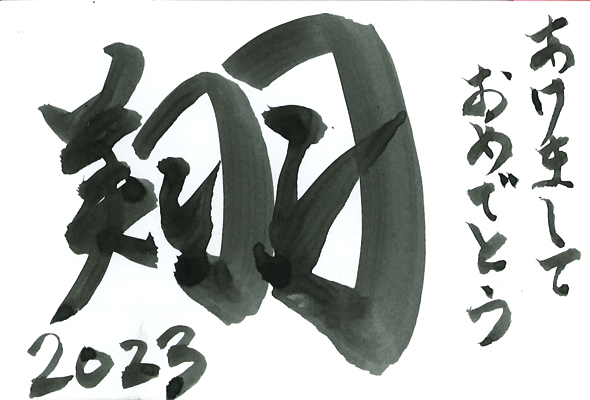 あけまして
おめでとう
翔
2023